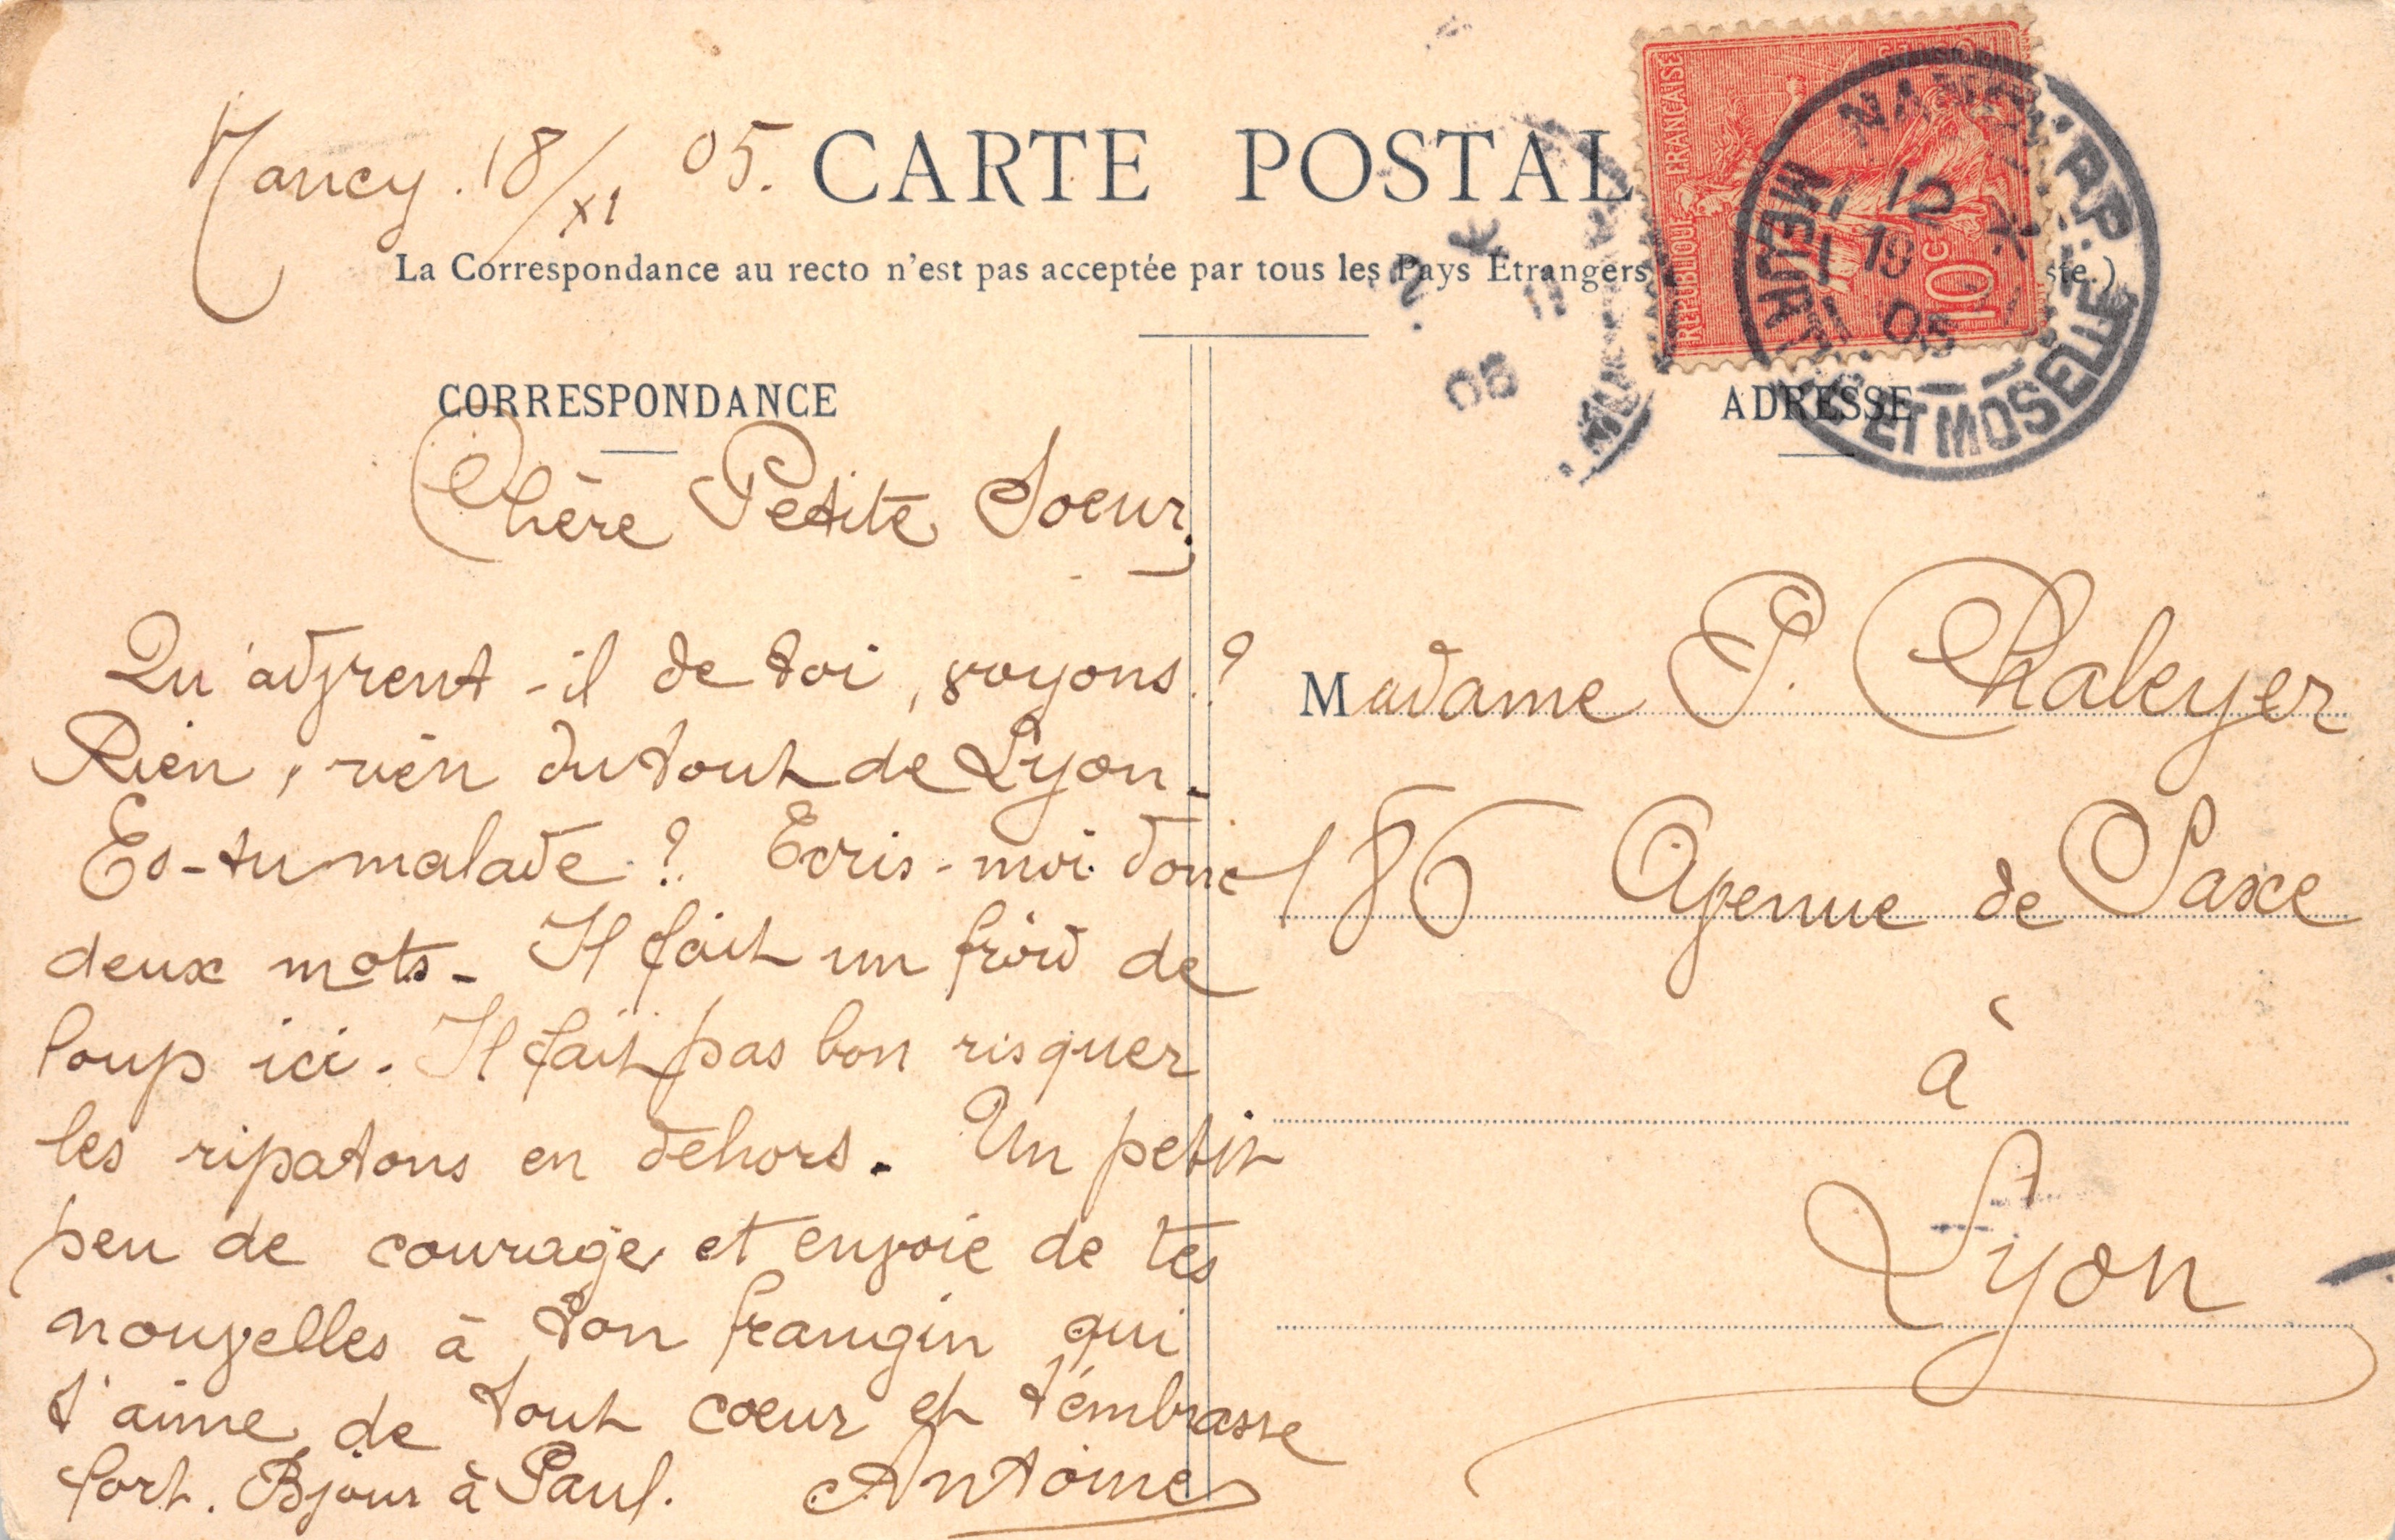 Nancy. 18/XI 05.
CARTE POSTAL
La Correspondance au recto n'est pas acceptée par tous les Pays Etrangers ste.)
REPUBLIQUE FRANÇAISE
10c
NANCY R.P.
12
19
05
MEURTHE ET MOSELLE
05
CORRESPONDANCE
ADRESSE
Chère Petite Soeur,
Qu'advient-il de toi, voyons ?
Rien, rien du tout de Lyon.
Es-tu malade ? Ecris-moi donc
deux mots - Il fait un froid de
loup ici. Il fait pas bon risquer
les ripatons en dehors. Un petit
peu de courage et envoie de tes
nouvelles à ton frangin qui
t'aime de tout coeur et t'embrasse
fort. Bjour à Paul. Antoine
Madame P. Chaleyer
186 Avenue de Saxe
à
Lyon